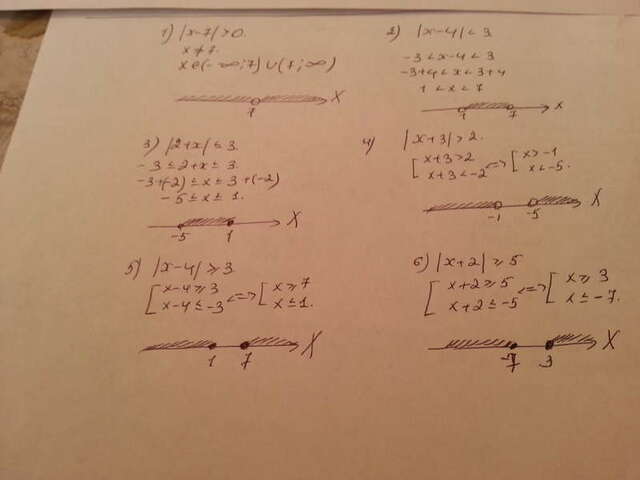 1) |x-7|>0.
x≠7.
x∈(-∞;7)∪(7;∞)
7 X
2) |x-4|<3
-3<x-4<3
-3+4<x<3+4
1<x<7
1 7 x
3) |2+x|≤3.
-3≤2+x≤3.
-3+(-2)≤x≤3+(-2)
-5≤x≤1.
-5 1 X
4) |x+3|>2.
[x+3>2 <=> [x>-1
x+3<-2 x<-5.
-1 -5 X
5) |x-4|≥3
[x-4≥3 <=> [x≥7
x-4≤-3 x≤1.
1 7 X
6) |x+2|≥5
[x+2≥5 <=> [x≥3
x+2≤-5 x≤-7.
-7 3 X